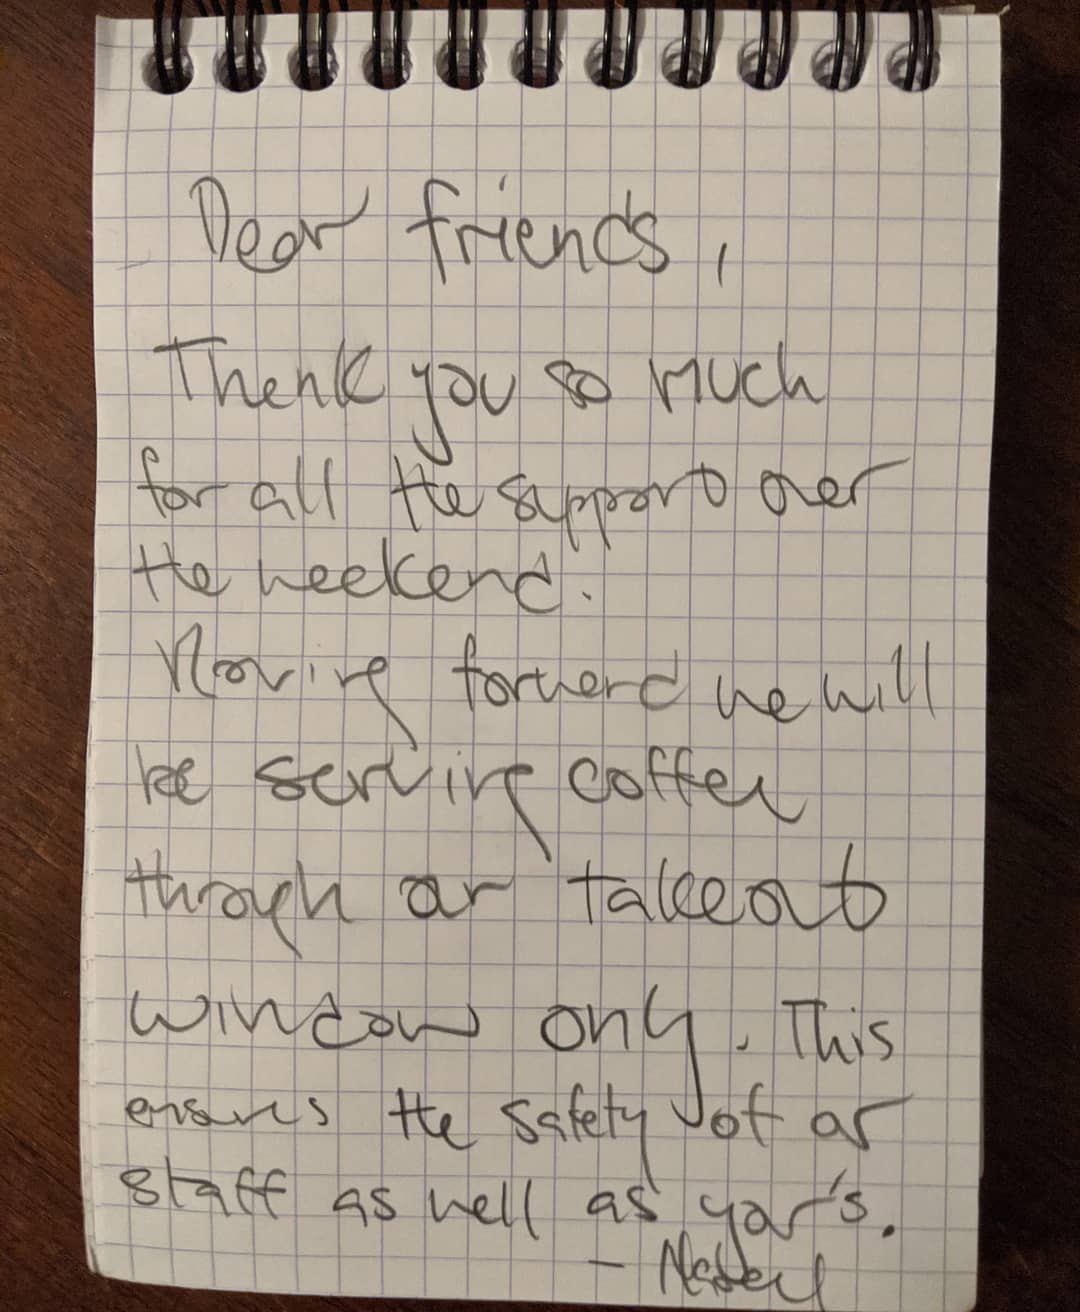 Dear friends,
Thank you so much
for all the support over
the weekend.
Moving forward we will
be serving coffee
through our takeout
window only. This
ensures the safety of our
staff as well as your's.
-